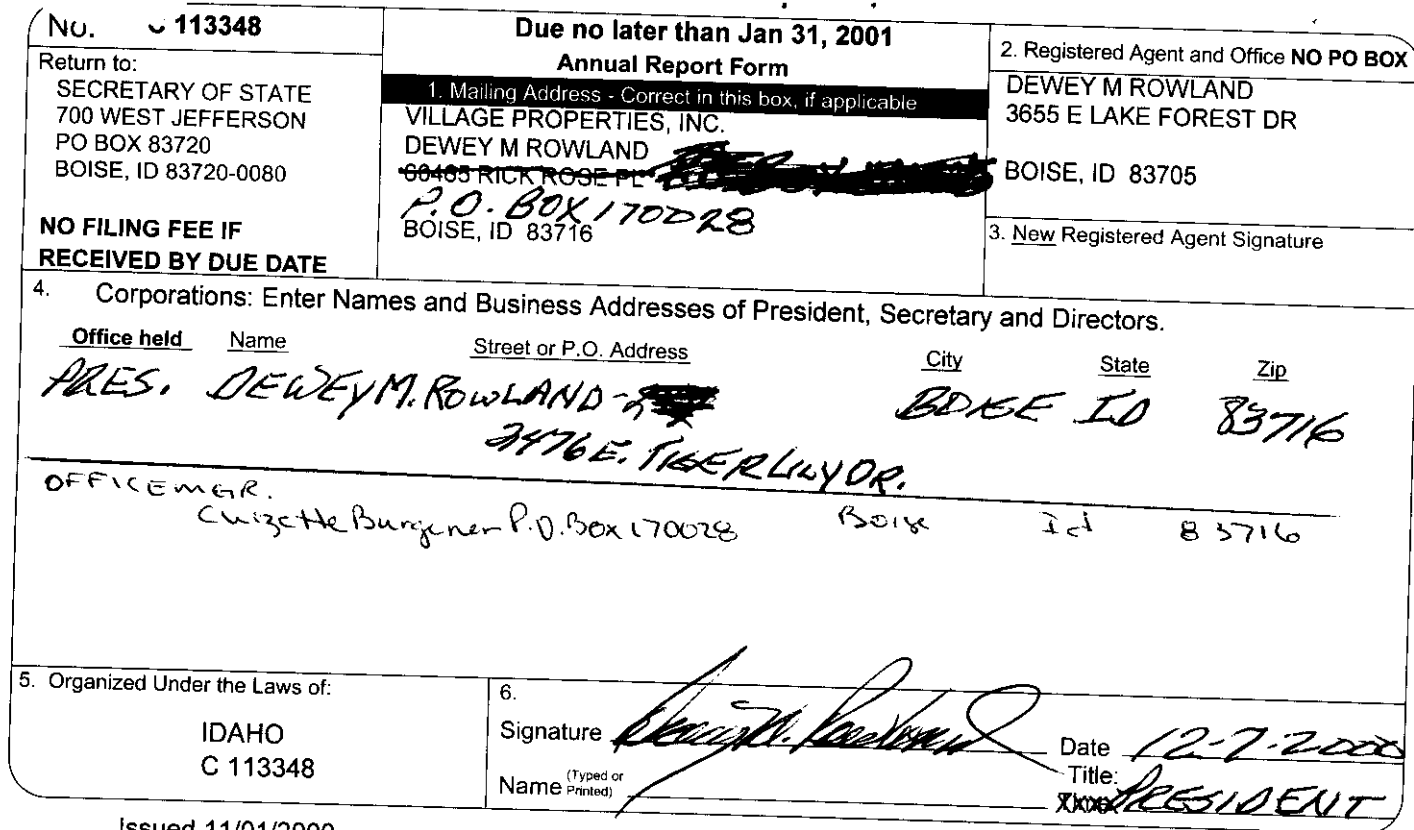 No. C 113348
Return to:
SECRETARY OF STATE
700 WEST JEFFERSON
PO BOX 83720
BOISE, ID 83720-0080
NO FILING FEE IF
RECEIVED BY DUE DATE
Due no later than Jan 31, 2001
Annual Report Form
1. Mailing Address - Correct in this box, if applicable
VILLAGE PROPERTIES, INC.
DEWEY M ROWLAND
RICK ROSE PL
P.O. BOX 170028
BOISE, ID 83716
2. Registered Agent and Office NO PO BOX
DEWEY M ROWLAND
3655 E LAKE FOREST DR
BOISE, ID 83705
3. New Registered Agent Signature
4. Corporations: Enter Names and Business Addresses of President, Secretary and Directors.
Office held Name Street or P.O. Address City State Zip
PRES. DEWEY M. ROWLAND - BOISE ID 83716
2476 E. TIGER LILY DR.
OFFICE MGR.
Burgener P.O. Box 170028 Boise Id 83716
5. Organized Under the Laws of:
IDAHO
C 113348
6.
Signature Date 12-7-2000
Name (Typed or Printed) Title: PRESIDENT
Issued 11/01/2000